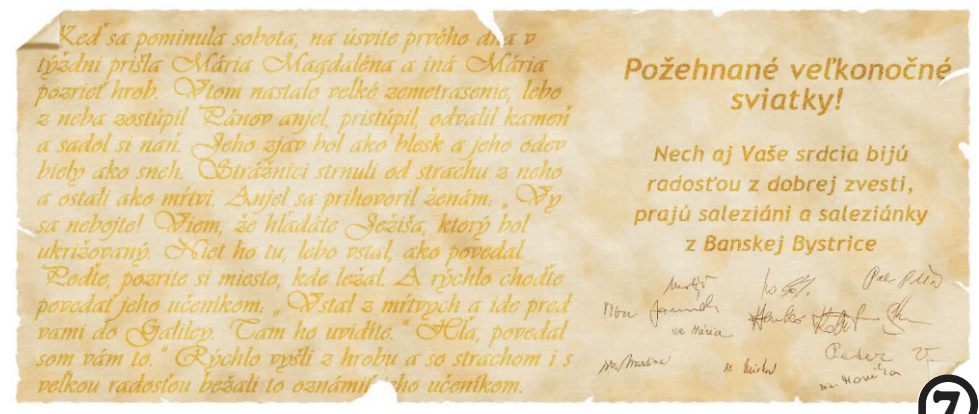 Keď sa pominula sobota, na úsvite prvého dňa v
týždni prišla Mária Magdaléna a iná Mária
pozrieť hrob. Vtom nastalo veľké zemetrasenie, lebo
z neba zostúpil Pánov anjel, pristúpil, odvalil kameň
a sadol si naň. Jeho zjav bol ako blesk a jeho odev
biely ako sneh. Strážnici strnuli od strachu z neho
a ostali ako mŕtvi. Anjel sa prihovoril ženám: „Vy
sa nebojte! Viem, že hľadáte Ježiša, ktorý bol
ukrižovaný. Niet ho tu, lebo vstal, ako povedal.
Poďte, pozrite si miesto, kde ležal. A rýchlo choďte
povedať jeho učeníkom: „Vstal z mŕtvych a ide pred
vami do Galiley. Tam ho uvidíte.“ Hľa, povedal
som vám to.“ Rýchlo vyšli z hrobu a so strachom i s
veľkou radosťou bežali to oznámiť jeho učeníkom.
Požehnané veľkonočné
sviatky!
Nech aj Vaše srdcia bijú
radosťou z dobrej zvesti,
prajú saleziáni a saleziánky
z Banskej Bystrice
Mária
Peter V.
7